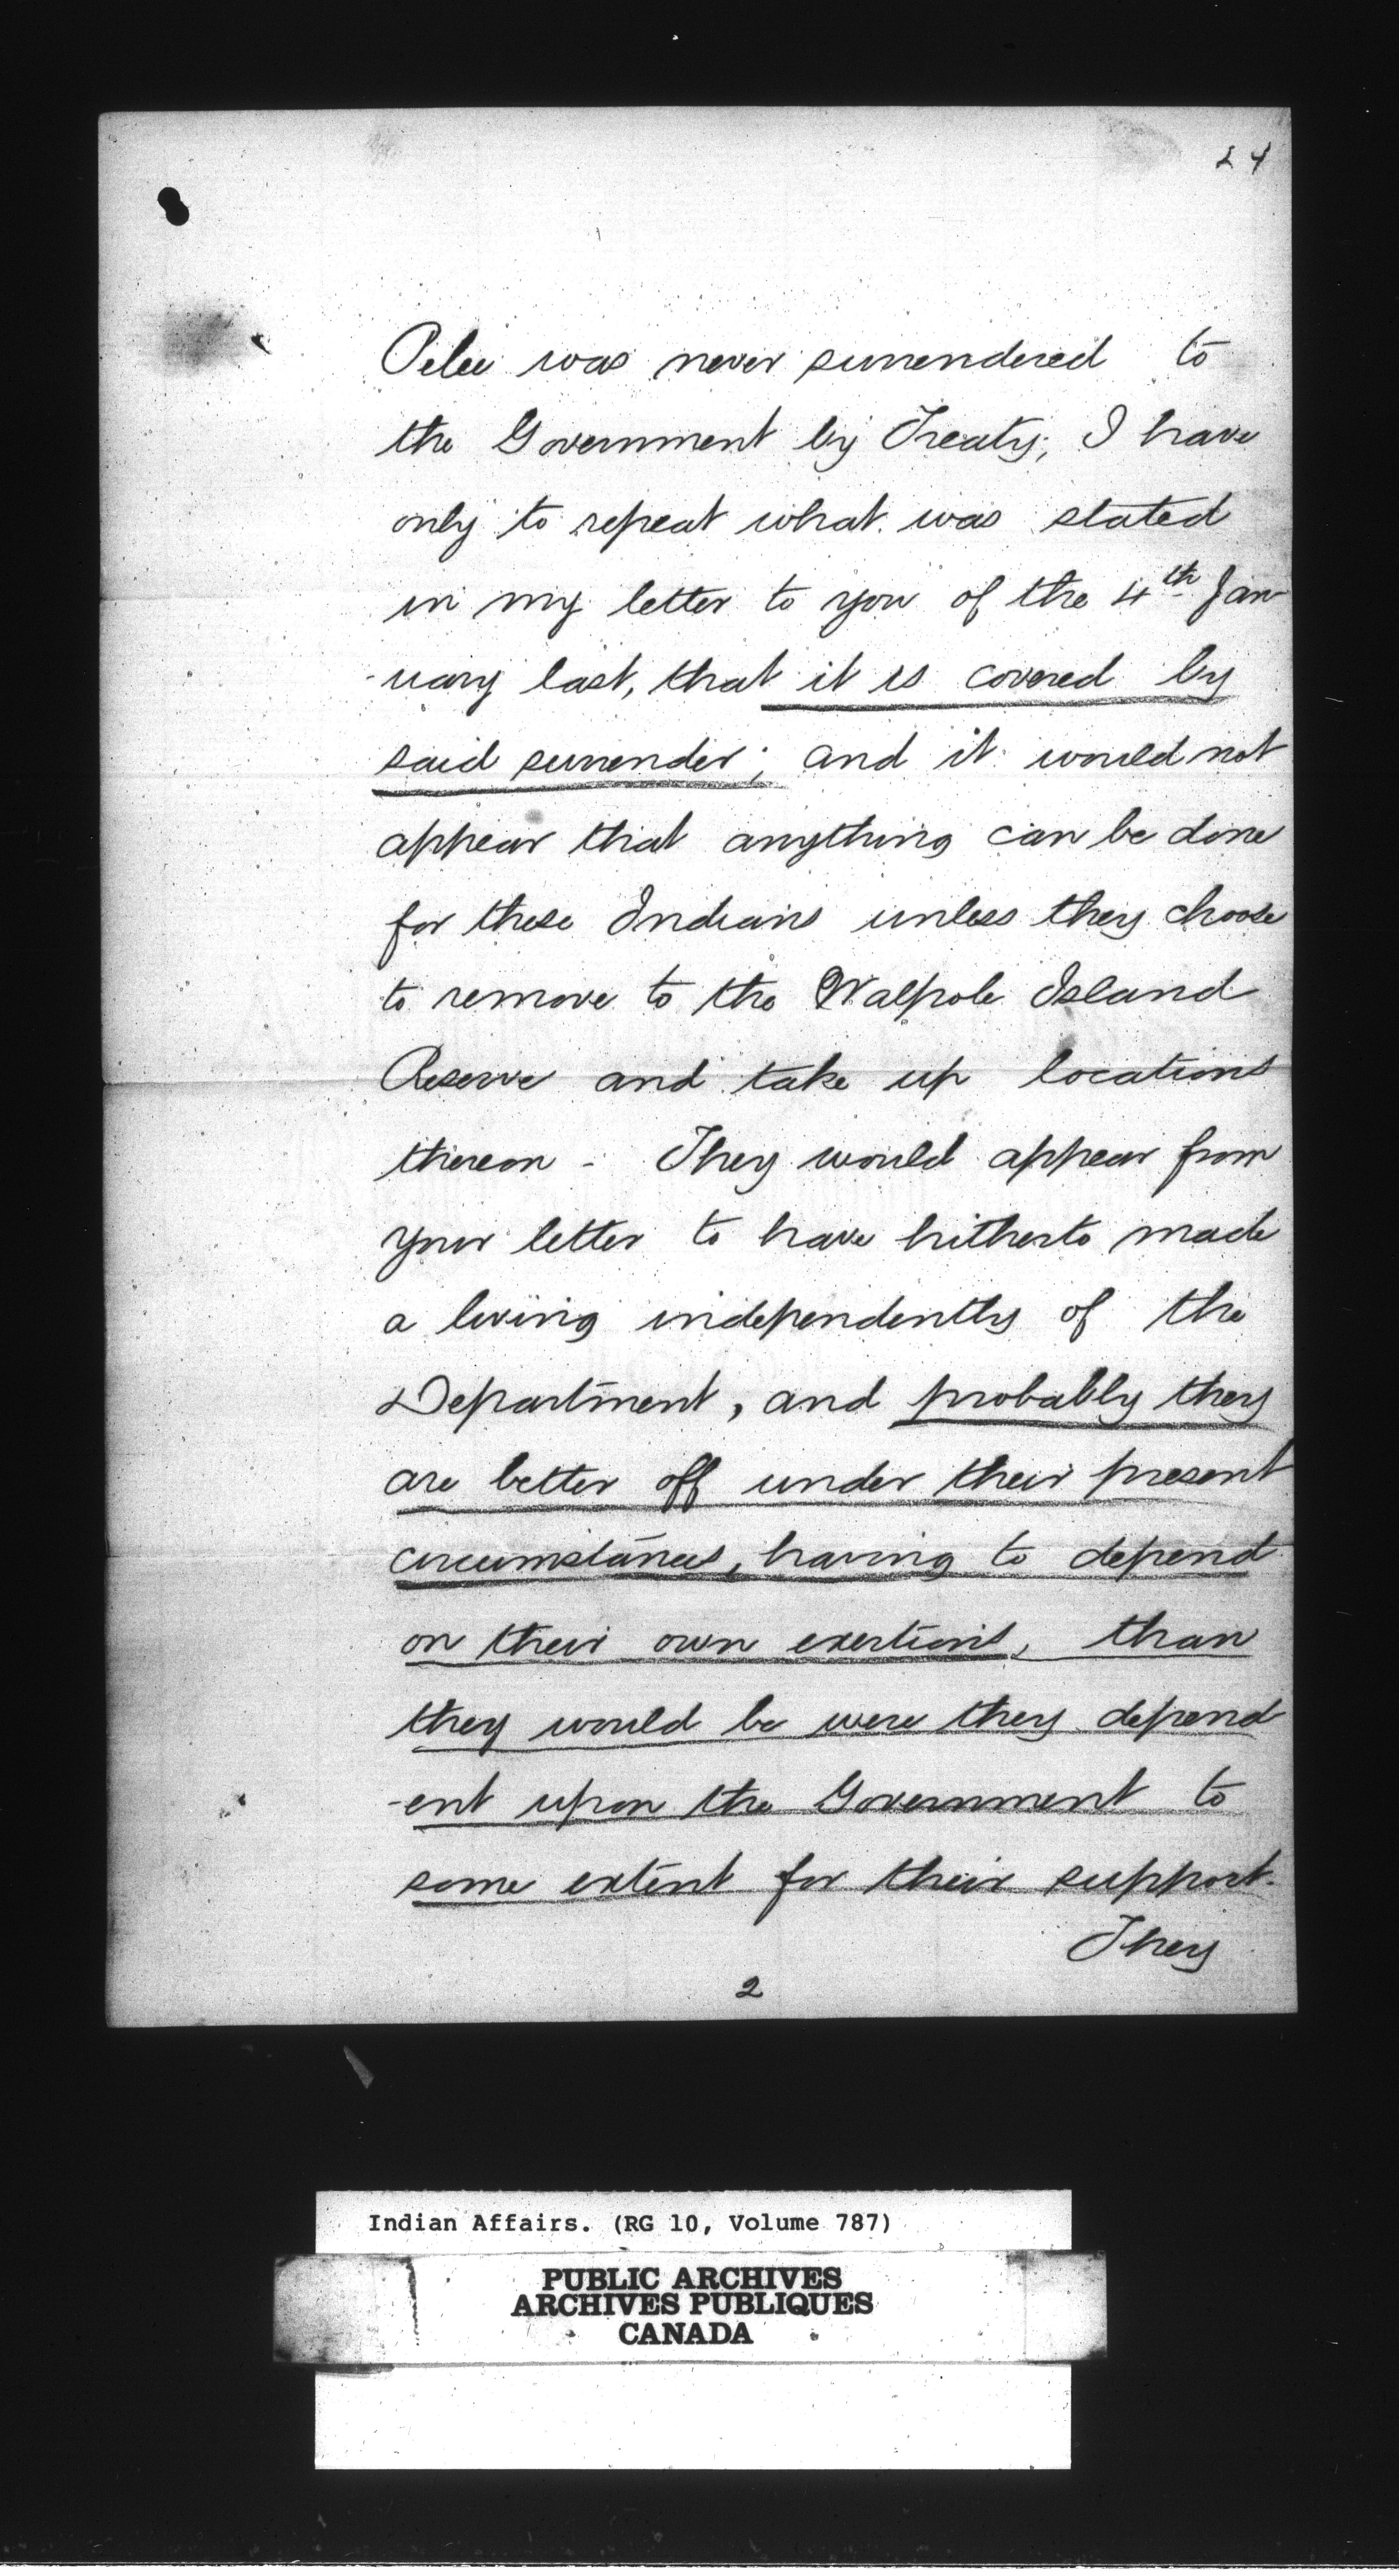 24
Pelee was never surrendered to
the Government by Treaty; I have
only to repeat what was stated
in my letter to you of the 4th Jan-
-uary last, that it is covered by
said surrender; and it would not
appear that anything can be done
for these Indians unless they choose
to remove to the Walpole Island
Reserve and take up locations
thereon - They would appear from
your letter to have hitherto made
a living independently of the
Department, and probably they
are better off under their present
circumstances, having to depend
on their own exertions, than
they would be were they depend
-ent upon the Government to
some extent for their support.
They
2
Indian Affairs. (RG 10, Volume 787)
PUBLIC ARCHIVES
ARCHIVES PUBLIQUES
CANADA